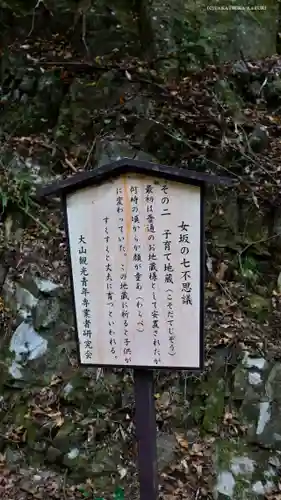 女坂の七不思議
その二 子育て地蔵(こそだてじぞう)
最初は普通のお地蔵様として安置されたが
何時の頃からか顔が童あ(わらべ)
に変わっていた。この地蔵に祈ると子供が
すくすくと丈夫に育つといわれる。
大山観光青年専業者研究会